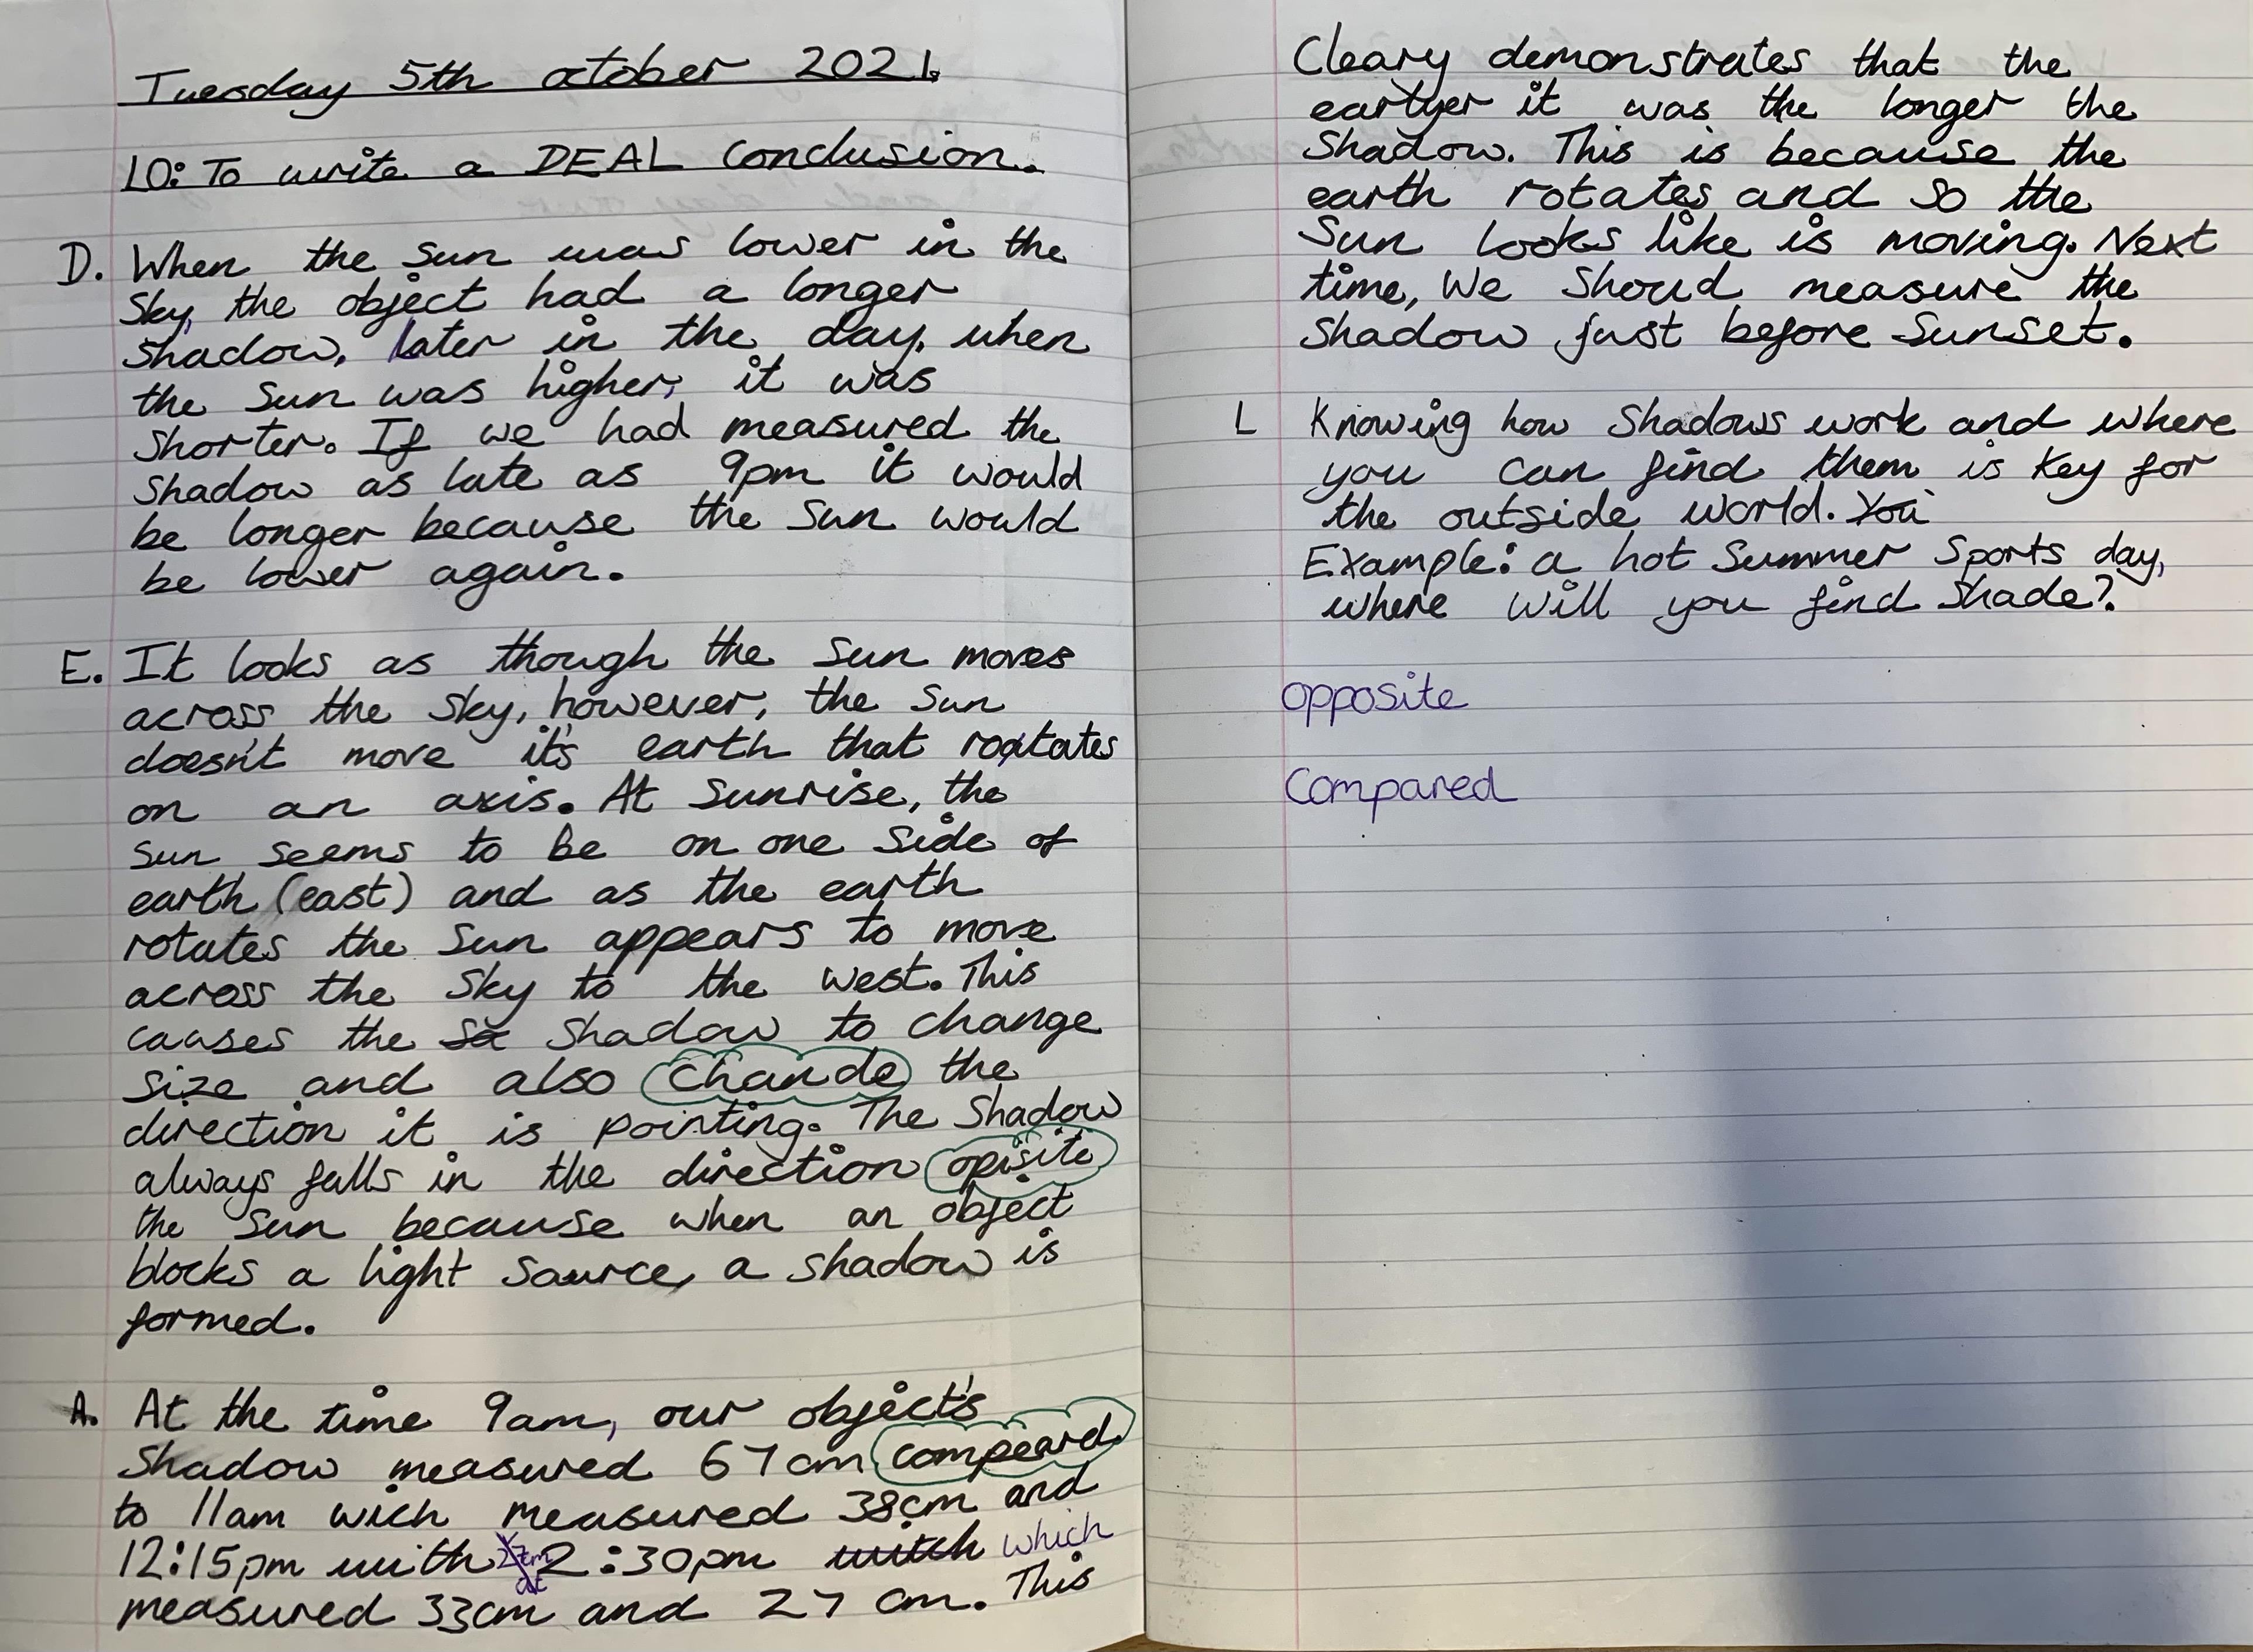 Tuesday 5th october 2021.
LO: To write a DEAL conclusion.
D. When the sun was lower in the
sky, the object had a longer
shadow, later in the day, when
the sun was higher, it was
shorter. If we had measured the
shadow as late as 9pm it would
be longer because the sun would
be lower again.
E. It looks as though the sun moves
across the sky, however, the sun
doesn't move it's earth that rotates
on an axis. At sunrise, the
sun seems to be on one side of
earth (east) and as the earth
rotates the sun appears to move
across the sky to the west. This
causes the sa shadow to change
size and also chande the
direction it is pointing. The shadow
always falls in the direction opisite
the sun because when an object
blocks a light source, a shadow is
formed.
A. At the time 9am, our object's
shadow measured 67cm compeard
to 11am wich measured 38cm and
12:15pm with 27cm at 2:30pm witch which
measured 33cm and 27 cm. This
Cleary demonstrates that the
earlyer it was the longer the
shadow. This is because the
earth rotates and so the
sun looks like is moving. Next
time, We shoud measure the
shadow just before sunset.
L Knowing how shadows work and where
you can find them is key for
the outside world. You
Example: a hot summer sports day,
where will you find shade?
opposite
Compared